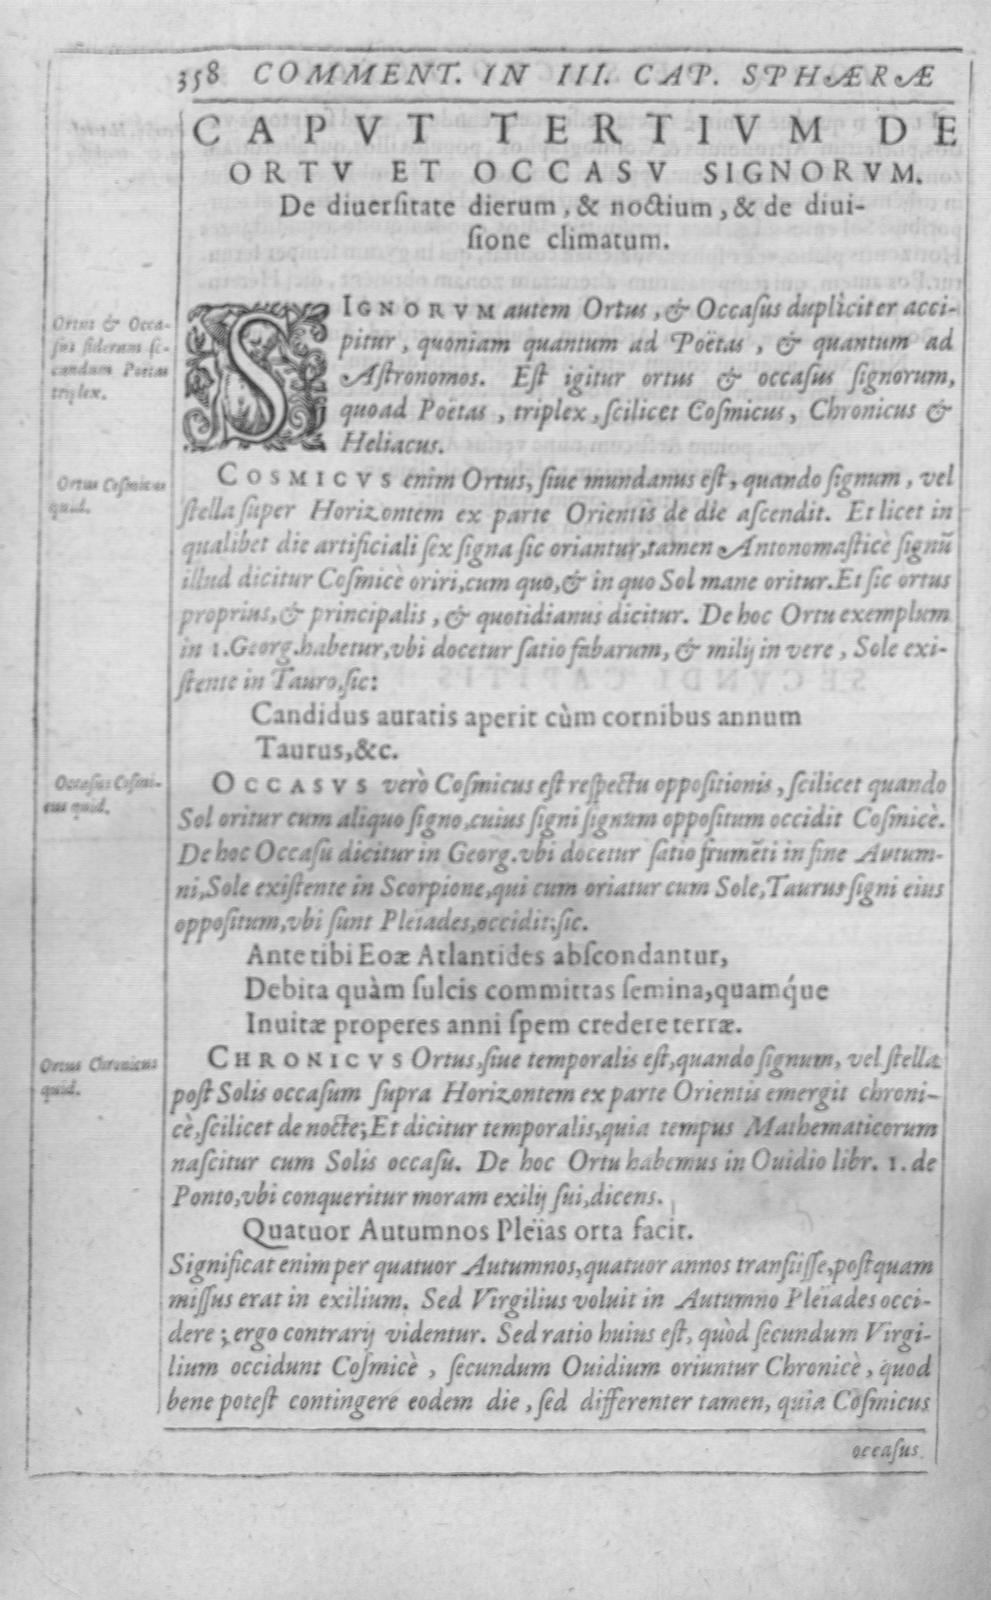 358 COMMENT. IN III. CAP. SPHÆRÆ
CAPVT TERTIVM DE
ORTV ET OCCASV SIGNORVM.
De diuersitate dierum, & noctium, & de diui-
sione climatum.
Ortus & Occa-
sus siderum se-
cundum Poëtas
triplex.
SIGNORVM autem Ortus, & Occasus dupliciter acci-
pitur, quoniam quantum ad Poëtas, & quantum ad
Astronomos. Est igitur ortus & occasus signorum,
quoad Poëtas, triplex, scilicet Cosmicus, Chronicus &
Heliacus.
Ortus Cosmicus
quid.
COSMICVS enim Ortus, siue mundanus est, quando signum, vel
stella super Horizontem ex parte Orientis de die ascendit. Et licet in
qualibet die artificiali sex signa sic oriantur, tamen Antonomasticè signũ
illud dicitur Cosmicè oriri, cum quo, & in quo Sol mane oritur. Et sic ortus
proprius, & principalis, & quotidianus dicitur. De hoc Ortu exemplum
in 1. Georg. habetur, vbi docetur satio fabarum, & milij in vere, Sole exi-
stente in Tauro, sic:
Candidus auratis aperit cùm cornibus annum
Taurus, &c.
Occasus Cosmi-
cus quid.
OCCASVS verò Cosmicus est respectu oppositionis, scilicet quando
Sol oritur cum aliquo signo, cuius signi signum oppositum occidit Cosmicè.
De hoc Occasu dicitur in Georg. vbi docetur satio frumẽti in fine Autum-
ni, Sole existente in Scorpione, qui cum oriatur cum Sole, Taurus signi eius
oppositum, vbi sunt Pleïades, occidit; sic.
Ante tibi Eoæ Atlantides abscondantur,
Debita quàm sulcis committas semina, quamq́ue
Inuitæ properes anni spem credere terræ.
Ortus Chronicus
quid.
CHRONICVS Ortus, siue temporalis est, quando signum, vel stella
post Solis occasum supra Horizontem ex parte Orientis emergit chroni-
cè, scilicet de nocte; Et dicitur temporalis, quia tempus Mathematicorum
nascitur cum Solis occasu. De hoc Ortu habemus in Ouidio libr. 1. de
Ponto, vbi conqueritur moram exilij sui, dicens.
Quatuor Autumnos Pleïas orta facit.
Significat enim per quatuor Autumnos, quatuor annos transiisse, postquam
missus erat in exilium. Sed Virgilius voluit in Autumno Pleïades occi-
dere; ergo contrarij videntur. Sed ratio huius est, quòd secundum Virgi-
lium occidunt Cosmicè, secundum Ouidium oriuntur Chronicè, quod
bene potest contingere eodem die, sed differenter tamen, quia Cosmicus
occasus